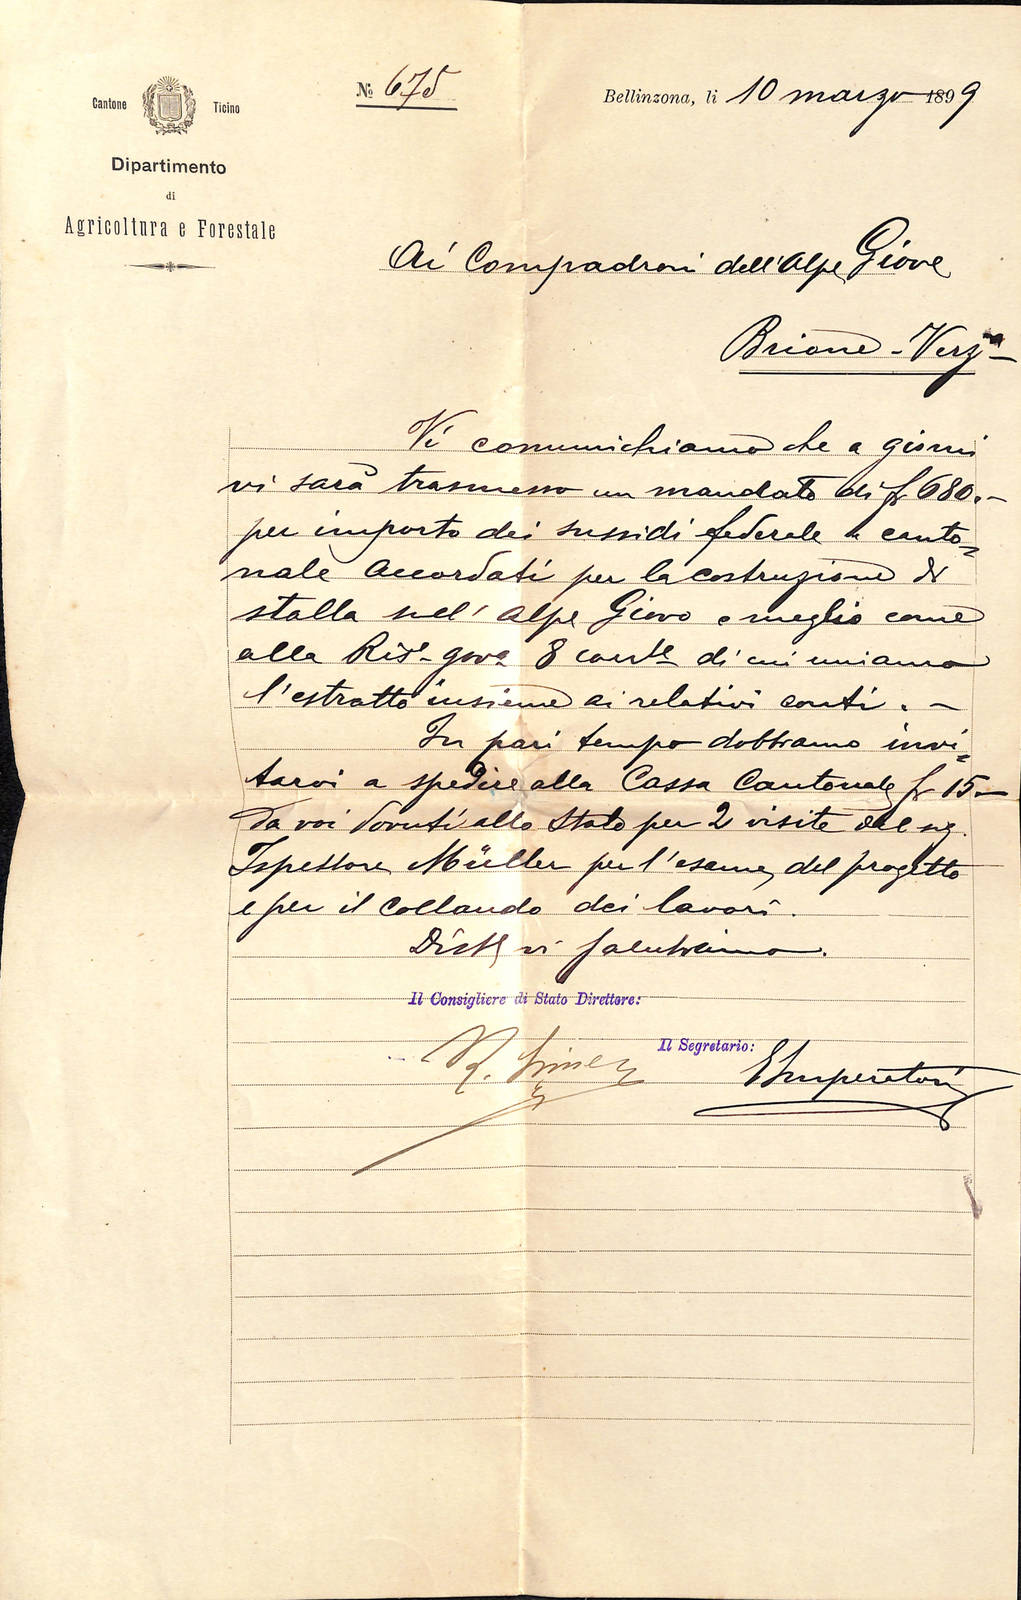 Cantone Ticino
Dipartimento
di
Agricoltura e Forestale
№ 675
Bellinzona, li 10 marzo 1899
Ai Compadroni dell'Alpe Giove
Brione - Verzª
Vi comunichiamo che a giorni
vi sarà trasmesso un mandato di fr 680.-
per importo dei sussidi federale e canto-
nale accordati per la costruzione di
stalla sull'Alpe Giovo e meglio come
alla Risˢ govª 8 corrte di cui uniamo
l'estratto insieme ai relativi conti. -
In pari tempo dobbiamo invi-
tarvi a spedire alla Cassa Cantonale fr 15.-
da voi dovuti allo Stato per 2 visite del sig.
Ispettore Müller per l'esame del progetto
e per il collaudo dei lavori.
vi salutiamo.
Il Consigliere di Stato Direttore:
R. Simen
Il Segretario:
E Imperatori